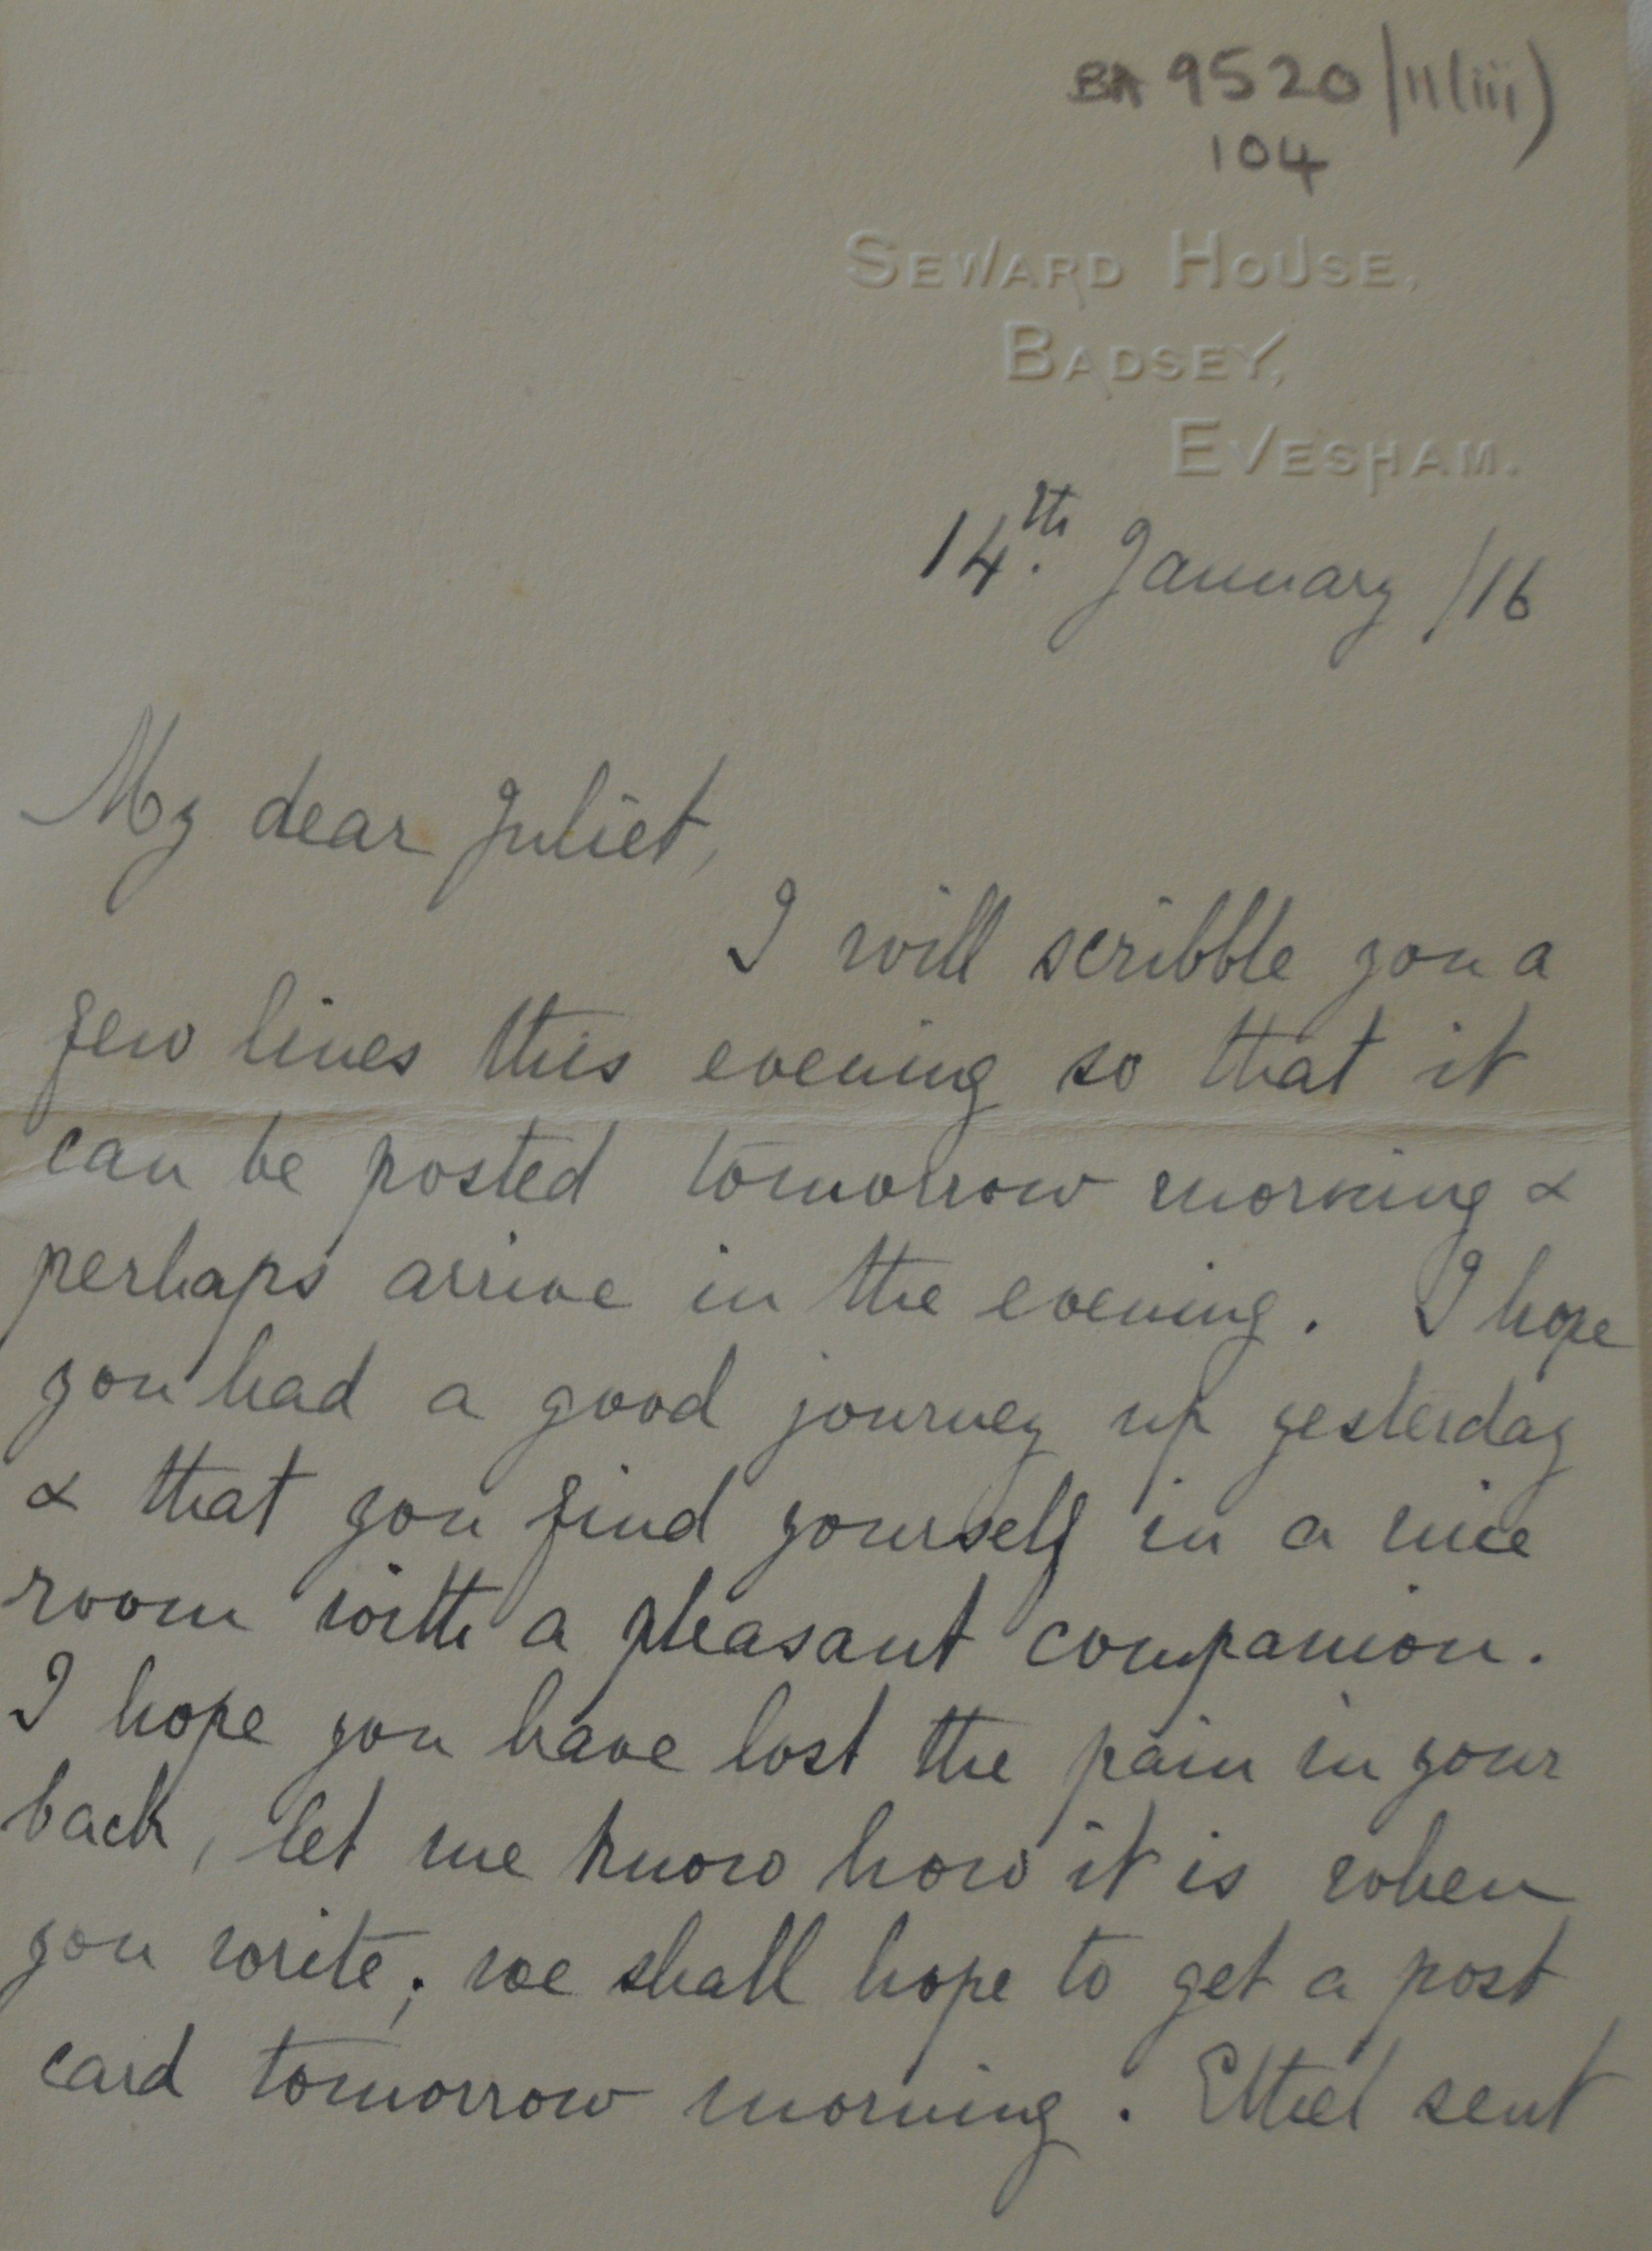 BA 9520/11(iii)
104
SEWARD HOUSE,
BADSEY,
EVESHAM.
14th. January /16
My dear Juliet,
I will scribble you a
few lines this evening so that it
can be posted tomorrow morning &
perhaps arrive in the evening. I hope
you had a good journey up yesterday
& that you find yourself in a nice
room with a pleasant companion.
I hope you have lost the pain in your
back, let me know how it is when
you write; we shall hope to get a post
card tomorrow morning. Ethel sent